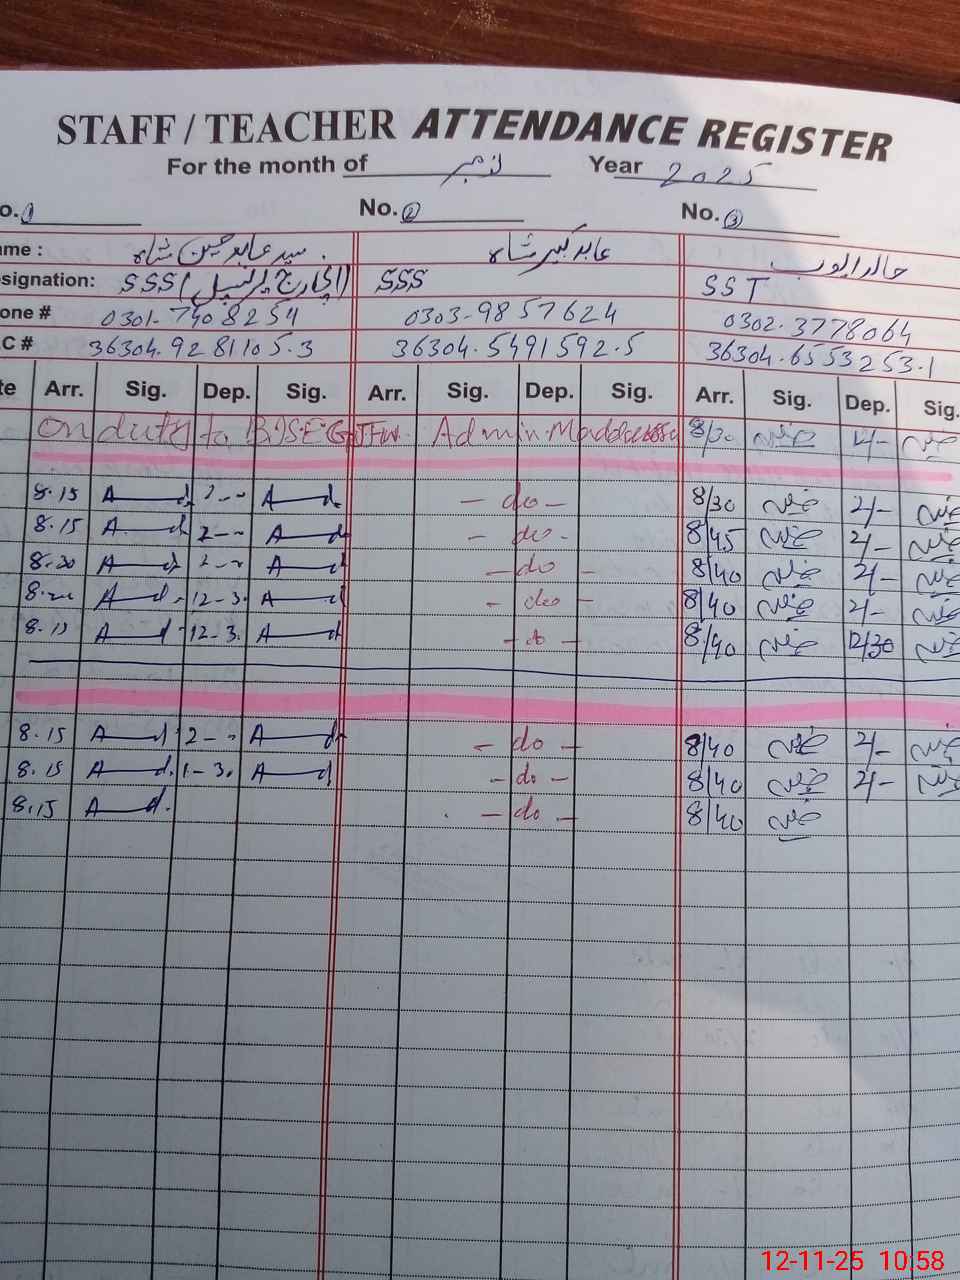 STAFF / TEACHER ATTENDANCE REGISTER
For the month of نومبر Year 2025
No. 1 No. 2 No. 3
Name : سید عابد حسین شاہ عابد کبیر شاہ خالد ایوب
Designation: SSS (انچارج پرنسپل) SSS SST
Phone # 0301-7408254 0303-9857624 0302-3778064
C # 36304.9281105.3 36304.5491592.5 36304.6553253.1
Arr. Sig. Dep. Sig. Arr. Sig. Dep. Sig. Arr. Sig. Dep. Sig.
on duty to BISE Admin 8/30 12/-
8.15 2-- - do - 8/30 2/-
8.15 2-- - do - 8/45 2/-
8.20 2-- - do - 8/40 2/-
12-3. - do - 8/40 2/-
8.15 12-3. - do - 8/40 12/30
8.15 2-- - do - 8/40 2/-
8.15 1-3. - do - 8/40 2/-
8.15 - do - 8/40
12-11-25 10:58